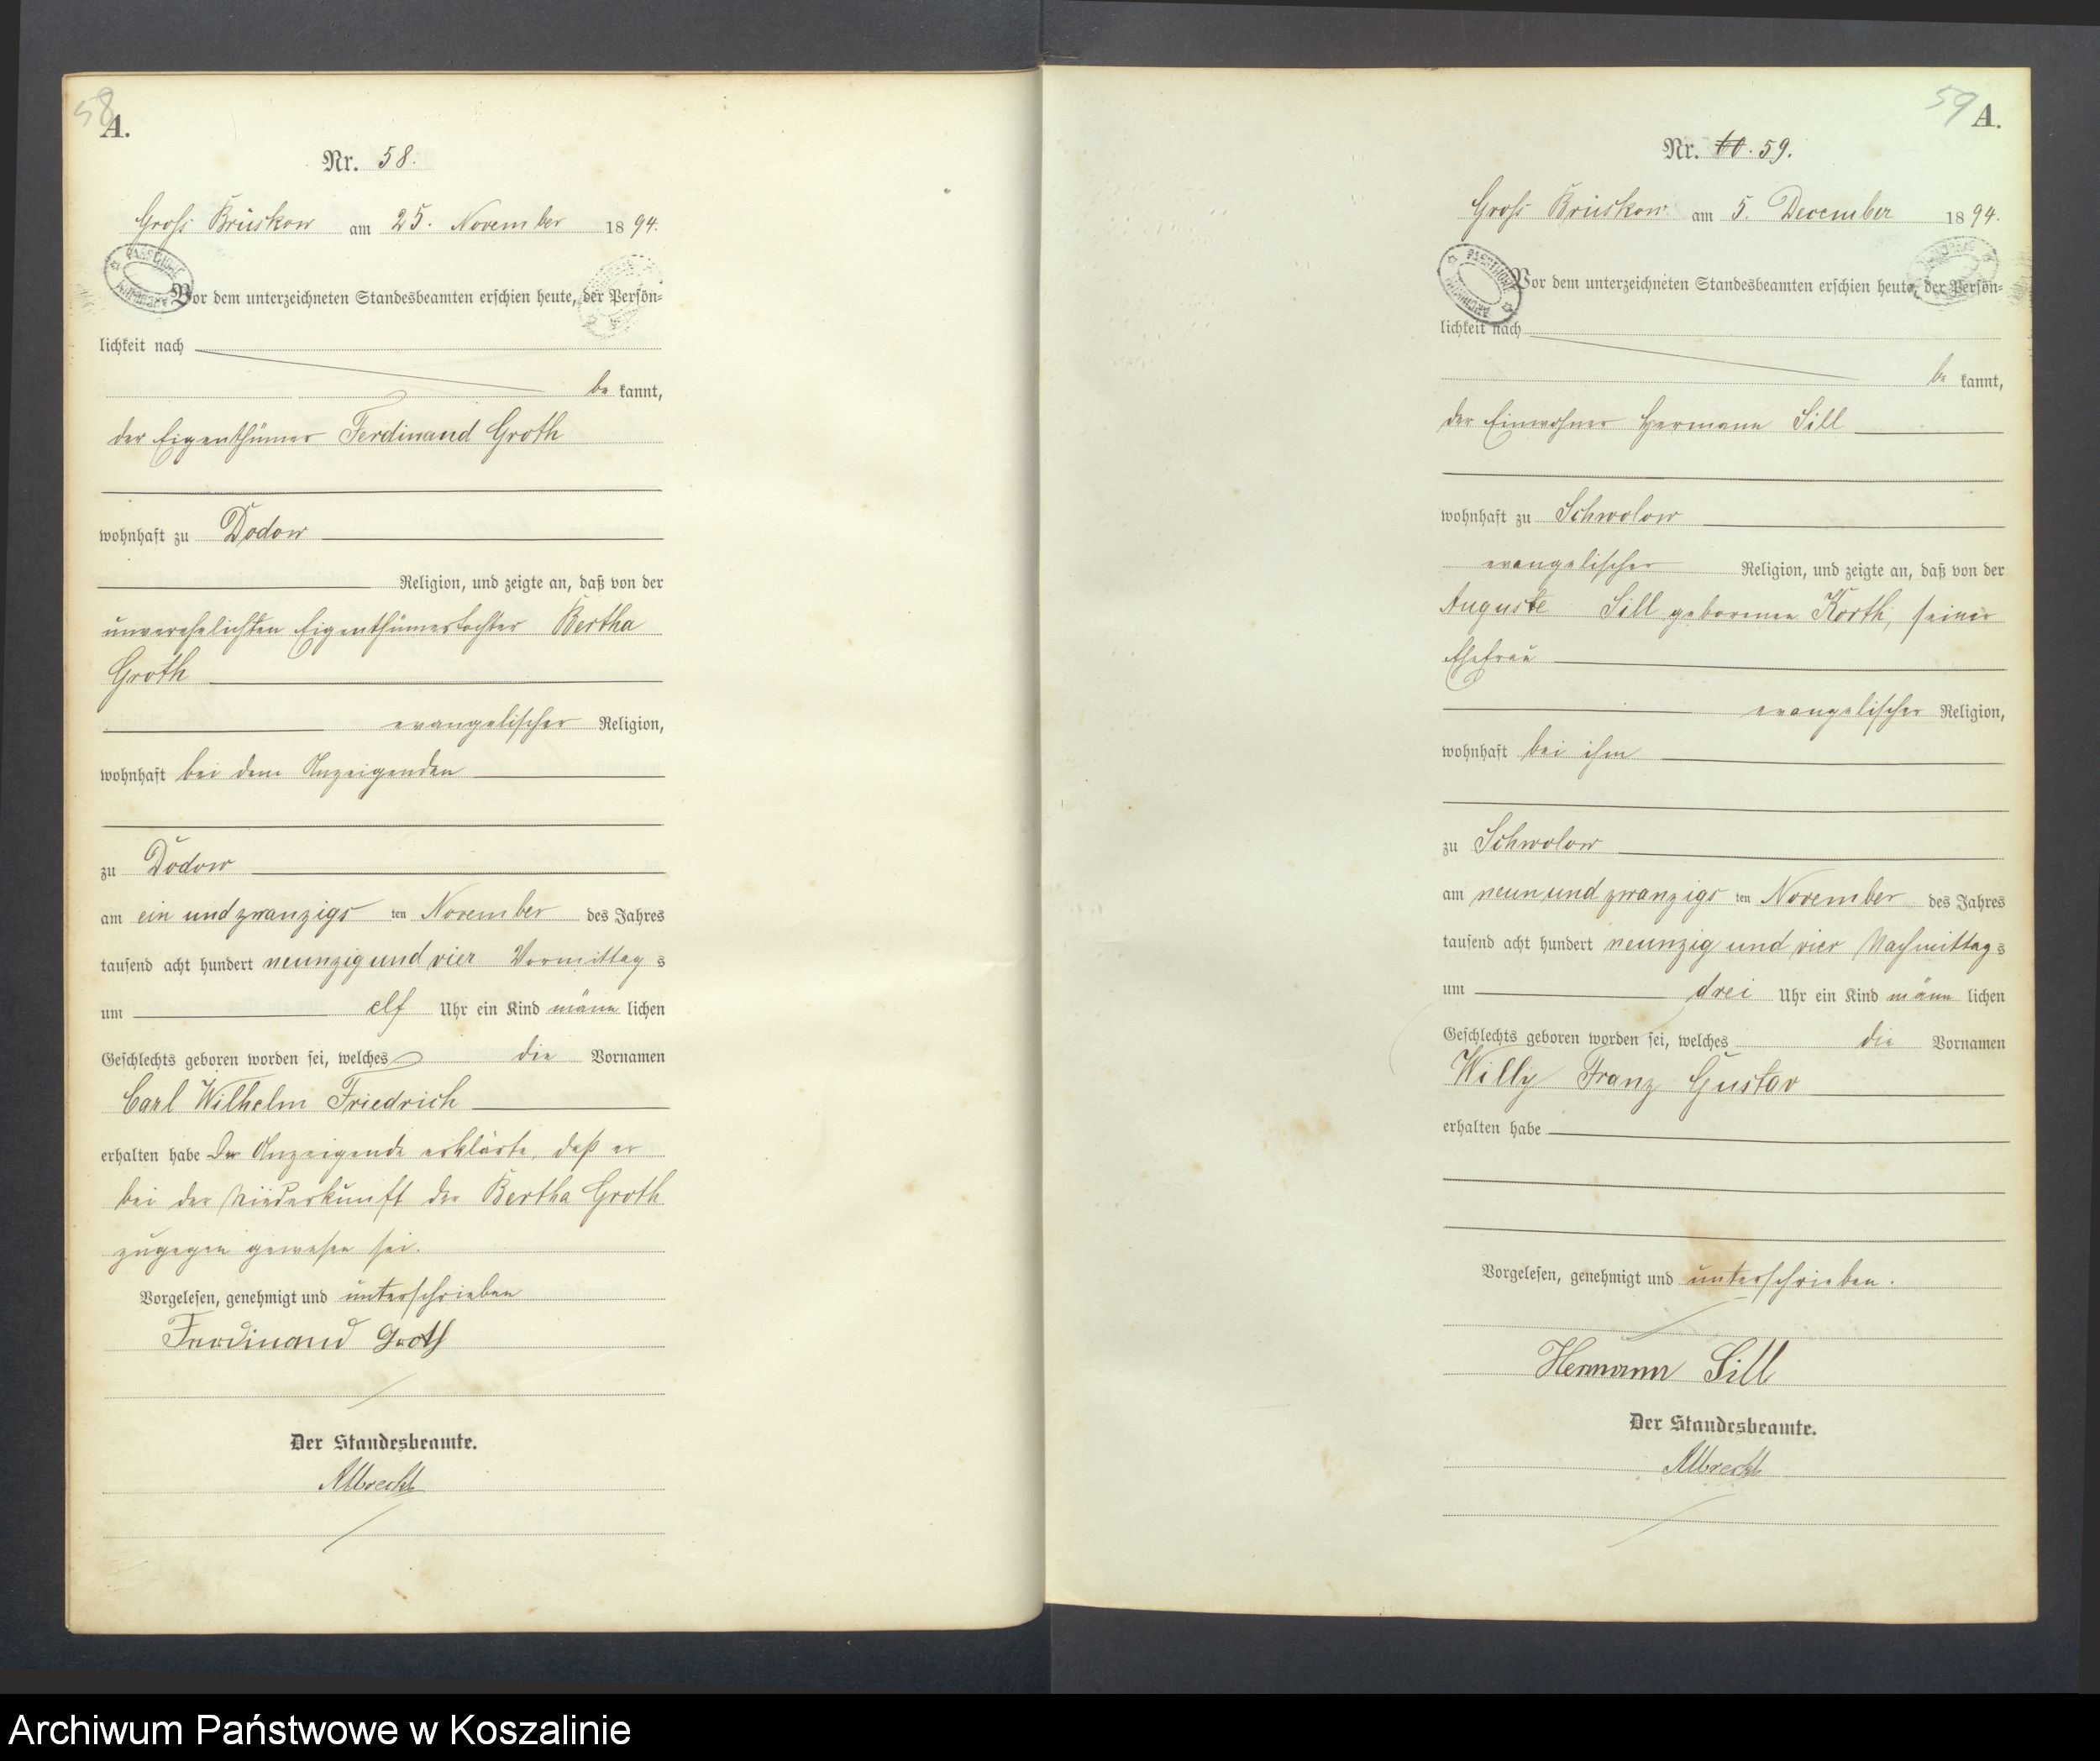 58
A.
Nr. 58.
Groß Brüskow am 25. November 1894.
Vor dem unterzeichneten Standesbeamten erschien heute, der Persön=
lichkeit nach
be kannt,
der Eigenthümer Ferdinand Groth
wohnhaft zu Dodow
Religion, und zeigte an, daß von der
unverehelichten Eigenthümertochter Bertha
Groth
evangelischer Religion,
wohnhaft bei dem Anzeigenden
zu Dodow
am ein und zwanzigs ten November des Jahres
tausend acht hundert neunzig und vier Vormittag s
um elf Uhr ein Kind männ lichen
Geschlechts geboren worden sei, welches die Vornamen
Carl Wilhelm Friedrich
erhalten habe Der Anzeigende erklärte, daß er
bei der Niederkunft der Bertha Groth
zugegen gewesen sei.
Vorgelesen, genehmigt und unterschrieben
Ferdinand Groth
Der Standesbeamte.
Albrecht
59
A.
Nr. 59.
Groß Brüskow. am 5. December 1894.
Vor dem unterzeichneten Standesbeamten erschien heute, der Persön=
lichkeit nach
be kannt,
der Einwohner Hermann Sill
wohnhaft zu Schwolow
evangelischer Religion, und zeigte an, daß von der
Auguste Sill geborenen Korth, seiner
Ehefrau
evangelischer Religion,
wohnhaft bei ihm
zu Schwolow
am neun und zwanzigs ten November des Jahres
tausend acht hundert neunzig und vier Nachmittag s
um drei Uhr ein Kind männ lichen
Geschlechts geboren worden sei, welches die Vornamen
Willy Franz Gustav
erhalten habe
Vorgelesen, genehmigt und unterschrieben.
Hermann Sill
Der Standesbeamte.
Albrecht
Archiwum Państwowe w Koszalinie